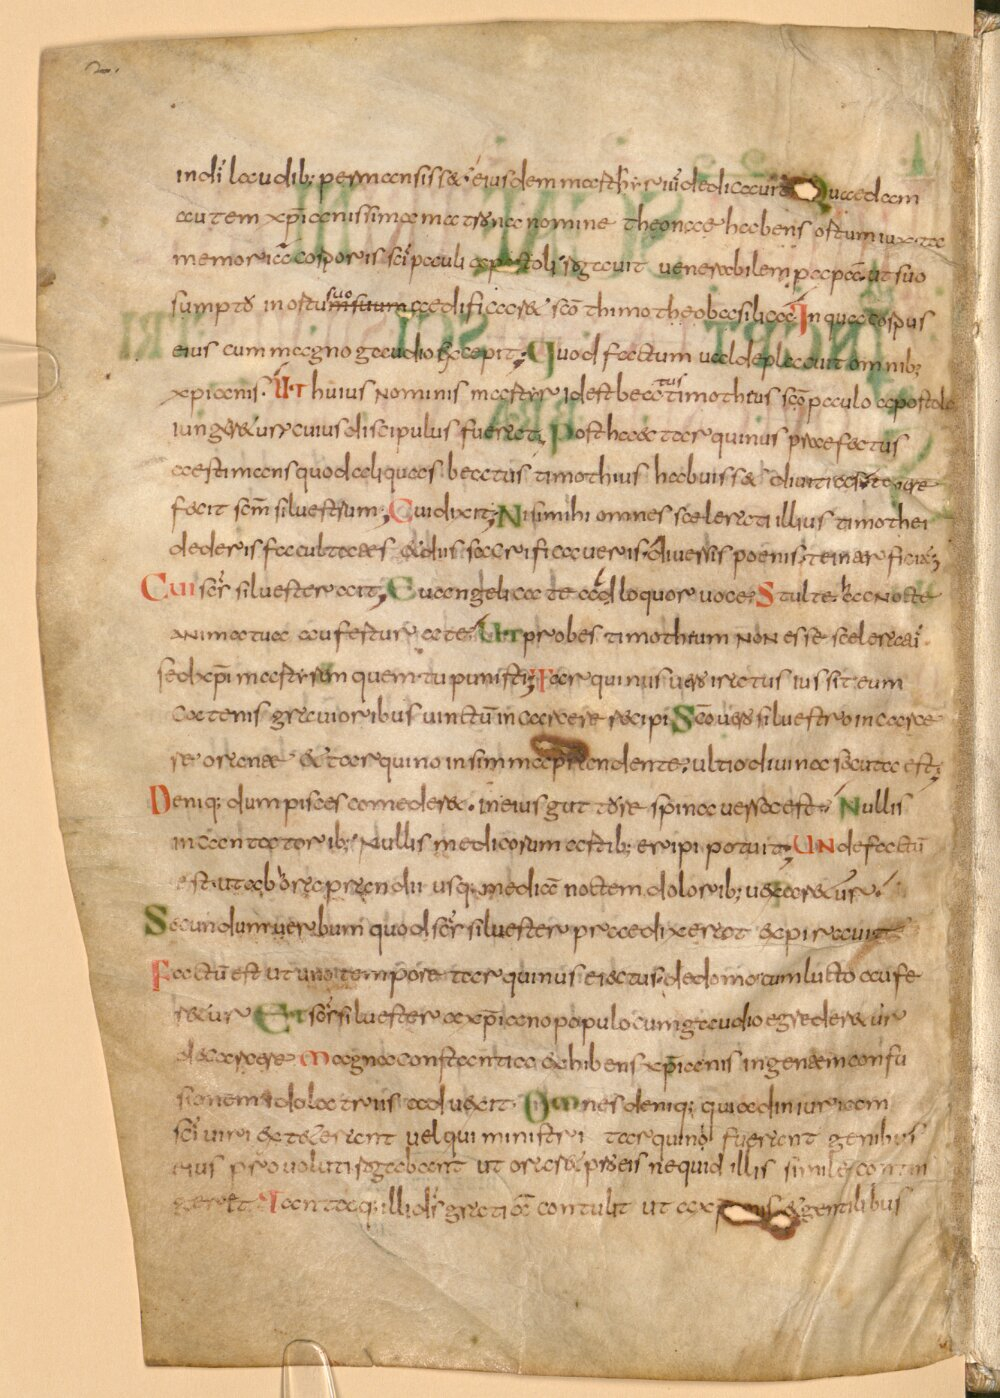 2.
in dī laudib; permansisset. eiusdem martyr iũ dedicauit Quaedam
autem xp̄ianissima matrona nomine theonae habens ortum iuxta
memoriā corporis sc̄i pauli apostoli rogauit uenerabilem papā. ut suo
sumptu in ortu suo aedificaret sc̄o thimotheo basilica In qua corpus
eius cum magno gaudio excepit; Quod factum ualde placuit omnib;
xp̄ianis. UT huius nominis martyr idest beatus timotheus sc̄o paulo apostolo
iungeretur cuius discipulus fuerat; Post haec tarquinus praefectus
aestimans quod aliquas beatus timothius habuisset diuitias tenere
fecit sc̄m siluestrum; Cui dixit; Nisi mihi omnes scelerati illius timothei
dederis facultates, et diis sacrificaueris. diuersis poenis te inar ficia;
Cui sc̄s siluester ait; Euangelica te adloquor uoce; Stulte. hac nocte
anima tua aufertur a te. UT probes timotheum non esse sceleratū.
sed xp̄i martyrem quem tu punisti; Tarquinius uero iratus iussit eum
catenis grauioribus uinctū in carcere recipi Sc̄o uero siluestro in carce
re orante et tarquino insimma prandente; ultio diuina secuta est;
Denique; dum pisces comederet. in eius gutture spina uersa est. Nullis
incantatorib; Nullis medicorum artib; eripi potuit; UNde factū
est. ut ab hora prandii usq; mediā noctem dolorib; uexaretur.
Secundum uerbum quod sc̄s siluester praedixerat expirauit
Factū est ut uno tempore tarquinus eiectus de domo cum luctu aufe
retur Et sc̄s siluester a xp̄iano populo cum gaudio egrederetur
de carcere. Magna constantia exhibens xp̄ianis ingentem confu
sionem idolatriis adduxit. Omnes denique; qui ad iniuriam
sc̄i uiri extolerant uel qui ministri tarquinō fuerant genibus
eius prouoluti rogabant ut oraret pro eis ne quid illis simile contin
geret. Tantaq; illi dī's gratiā contulit ut a xp̄ianis et gentilibus